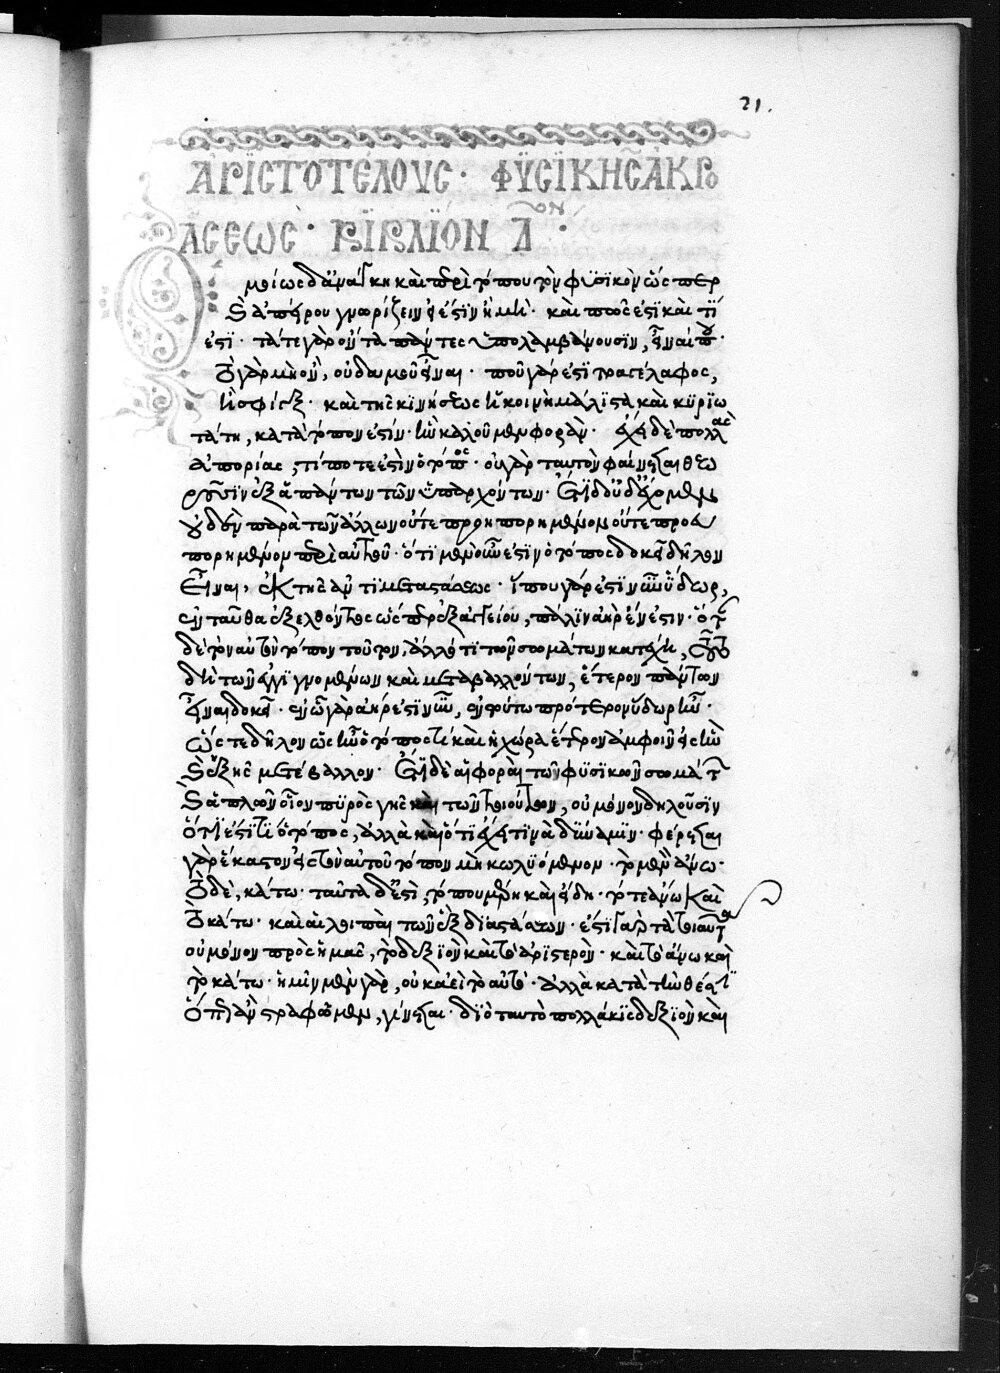 21.
ἈΡΙΣΤΟΤΈΛΟΥΣ· ΦΥΣΙΚΗ͂Σ ἈΚΡΟ
ΆΣΕΩΣ· ΒΙΒΛΙΟΝ Δ ον·
Ὁμοίως δ' ἀνάγκη καὶ περὶ τόπου τὸν φυσικὸν ὥσπερ
καὶ ἀπείρου γνωρίζειν εἰ ἔστιν ἢ μή· καὶ πῶς ἐστι καὶ τί
ἐστι· τά τε γὰρ ὄντα πάντες ὑπολαμβάνουσιν, εἶναί που·
τὸ γὰρ μὴ ὂν, οὐδαμοῦ εἶναι· ποῦ γάρ ἐστι τραγέλαφος,
ἢ σφίγξ· καὶ τῆς κινήσεως ἡ κοινὴ μάλιστα καὶ κυριω
τάτη, κατὰ τόπον ἐστίν· ἣν καλοῦμεν φοράν· ἔχει δὲ πολλὰς
ἀπορίας, τί ποτε ἐστὶν ὁ τόπος· οὐ γὰρ ταυτὸν φαίνεται θεω
ροῦσιν ἐξ ἁπάντων τῶν ὑπαρχόντων· ἔτι δὲ οὐδ' ἔχομεν
οὐδὲν παρὰ τῶν ἄλλων οὔτε προηπορημένον οὔτε προευ
πορημένον περὶ αὐτοῦ· ὅτι μὲν οὖν ἐστιν ὁ τόπος δοκεῖ δῆλον
εἶναι, ἐκ τῆς ἀντιμεταστάσεως· ὅπου γάρ ἐστι νῦν ὕδωρ,
ἐνταῦθα ἐξελθόντος ὥσπερ ἐξ ἀγγείου, πάλιν ἀὴρ ἔνεστιν· ὅτε
δὲ τὸν αὐτὸν τόπον τοῦτον, ἄλλό τι τῶν σωμάτων κατέχει, τοῦτο
δὴ τῶν ἐγγιγνομένων καὶ μεταβαλλόντων, ἕτερον πάντων
εἶναι δοκεῖ· ἐν ᾧ γὰρ ἀήρ ἐστι νῦν, ἐν τούτω πρότερον ὕδωρ ἦν·
ὥστε δῆλον ὡς ἦν ὁ τόπος τὶ καὶ ἡ χώρα ἕτερον ἀμφοῖν εἰς ἣν
καὶ ἐξ ἧς μετέβαλλον· ἔτι δὲ αἱ φοραὶ τῶν φυσικῶν σωμάτων
καὶ ἁπλῶν οἷον πυρὸς γῆς καὶ τῶν τοιούτων, οὐ μόνον δηλοῦσιν
ὅτι ἐστί τι ὁ τόπος, ἀλλὰ καὶ ὅτι ἔχει τινὰ δύναμιν· φέρεται
γὰρ ἕκαστον εἰς τὸν αὑτοῦ τόπον μὴ κωλυόμενον· τὸ μὲν ἄνω·
τὸ δὲ, κάτω· ταῦτα δ' ἐστὶ, τόπου μέρη καὶ εἴδη· τό τε ἄνω καὶ
τὸ κάτω· καὶ αἱ λοιπαὶ τῶν ἓξ διαστάσεων· ἔστι γὰρ τὰ τοιαῦτα
οὐ μόνον πρὸς ἡμᾶς, τὸ δεξιὸν καὶ τὸ ἀριστερόν· καὶ τὸ ἄνω καὶ
τὸ κάτω· ἡμῖν μὲν γὰρ, οὐκ ἀεὶ τὸ αὐτό· ἀλλὰ κατὰ τὴν θέσιν
ὅπως ἂν στραφῶμεν, γίνεται· διὸ ταυτὸ πολλάκις δεξιὸν καὶ